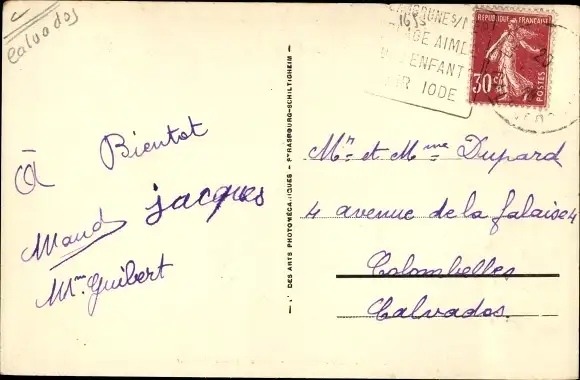 Calvados
1695
PLAGE AIMEE
ENFANT
AIR IODE
REPUBLIQUE FRANCAISE
30c
POSTES
À Bientot
Maud Jacques
Mme Guibert
DES ARTS PHOTOMÉCANIQUES - STRASBOURG-SCHILTIGHEIM -
Mr et Mme Dupard
4 avenue de la falaise 4
Colombelles
Calvados.